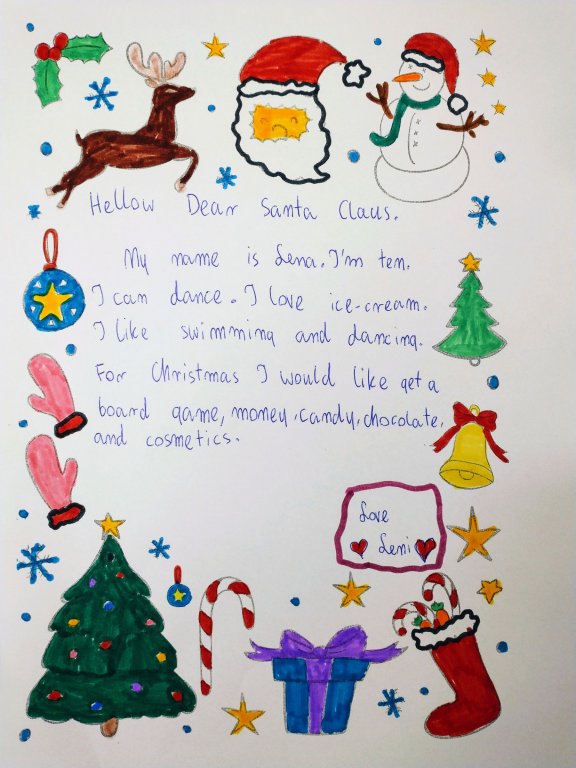 Hellow Dear Santa Claus.
My name is Lena. I'm ten.
I can dance. I love ice-cream.
I like swimming and dancing.
For Christmas I would like get a
board game, money, candy, chocolate,
and cosmetics.
Love
Leni